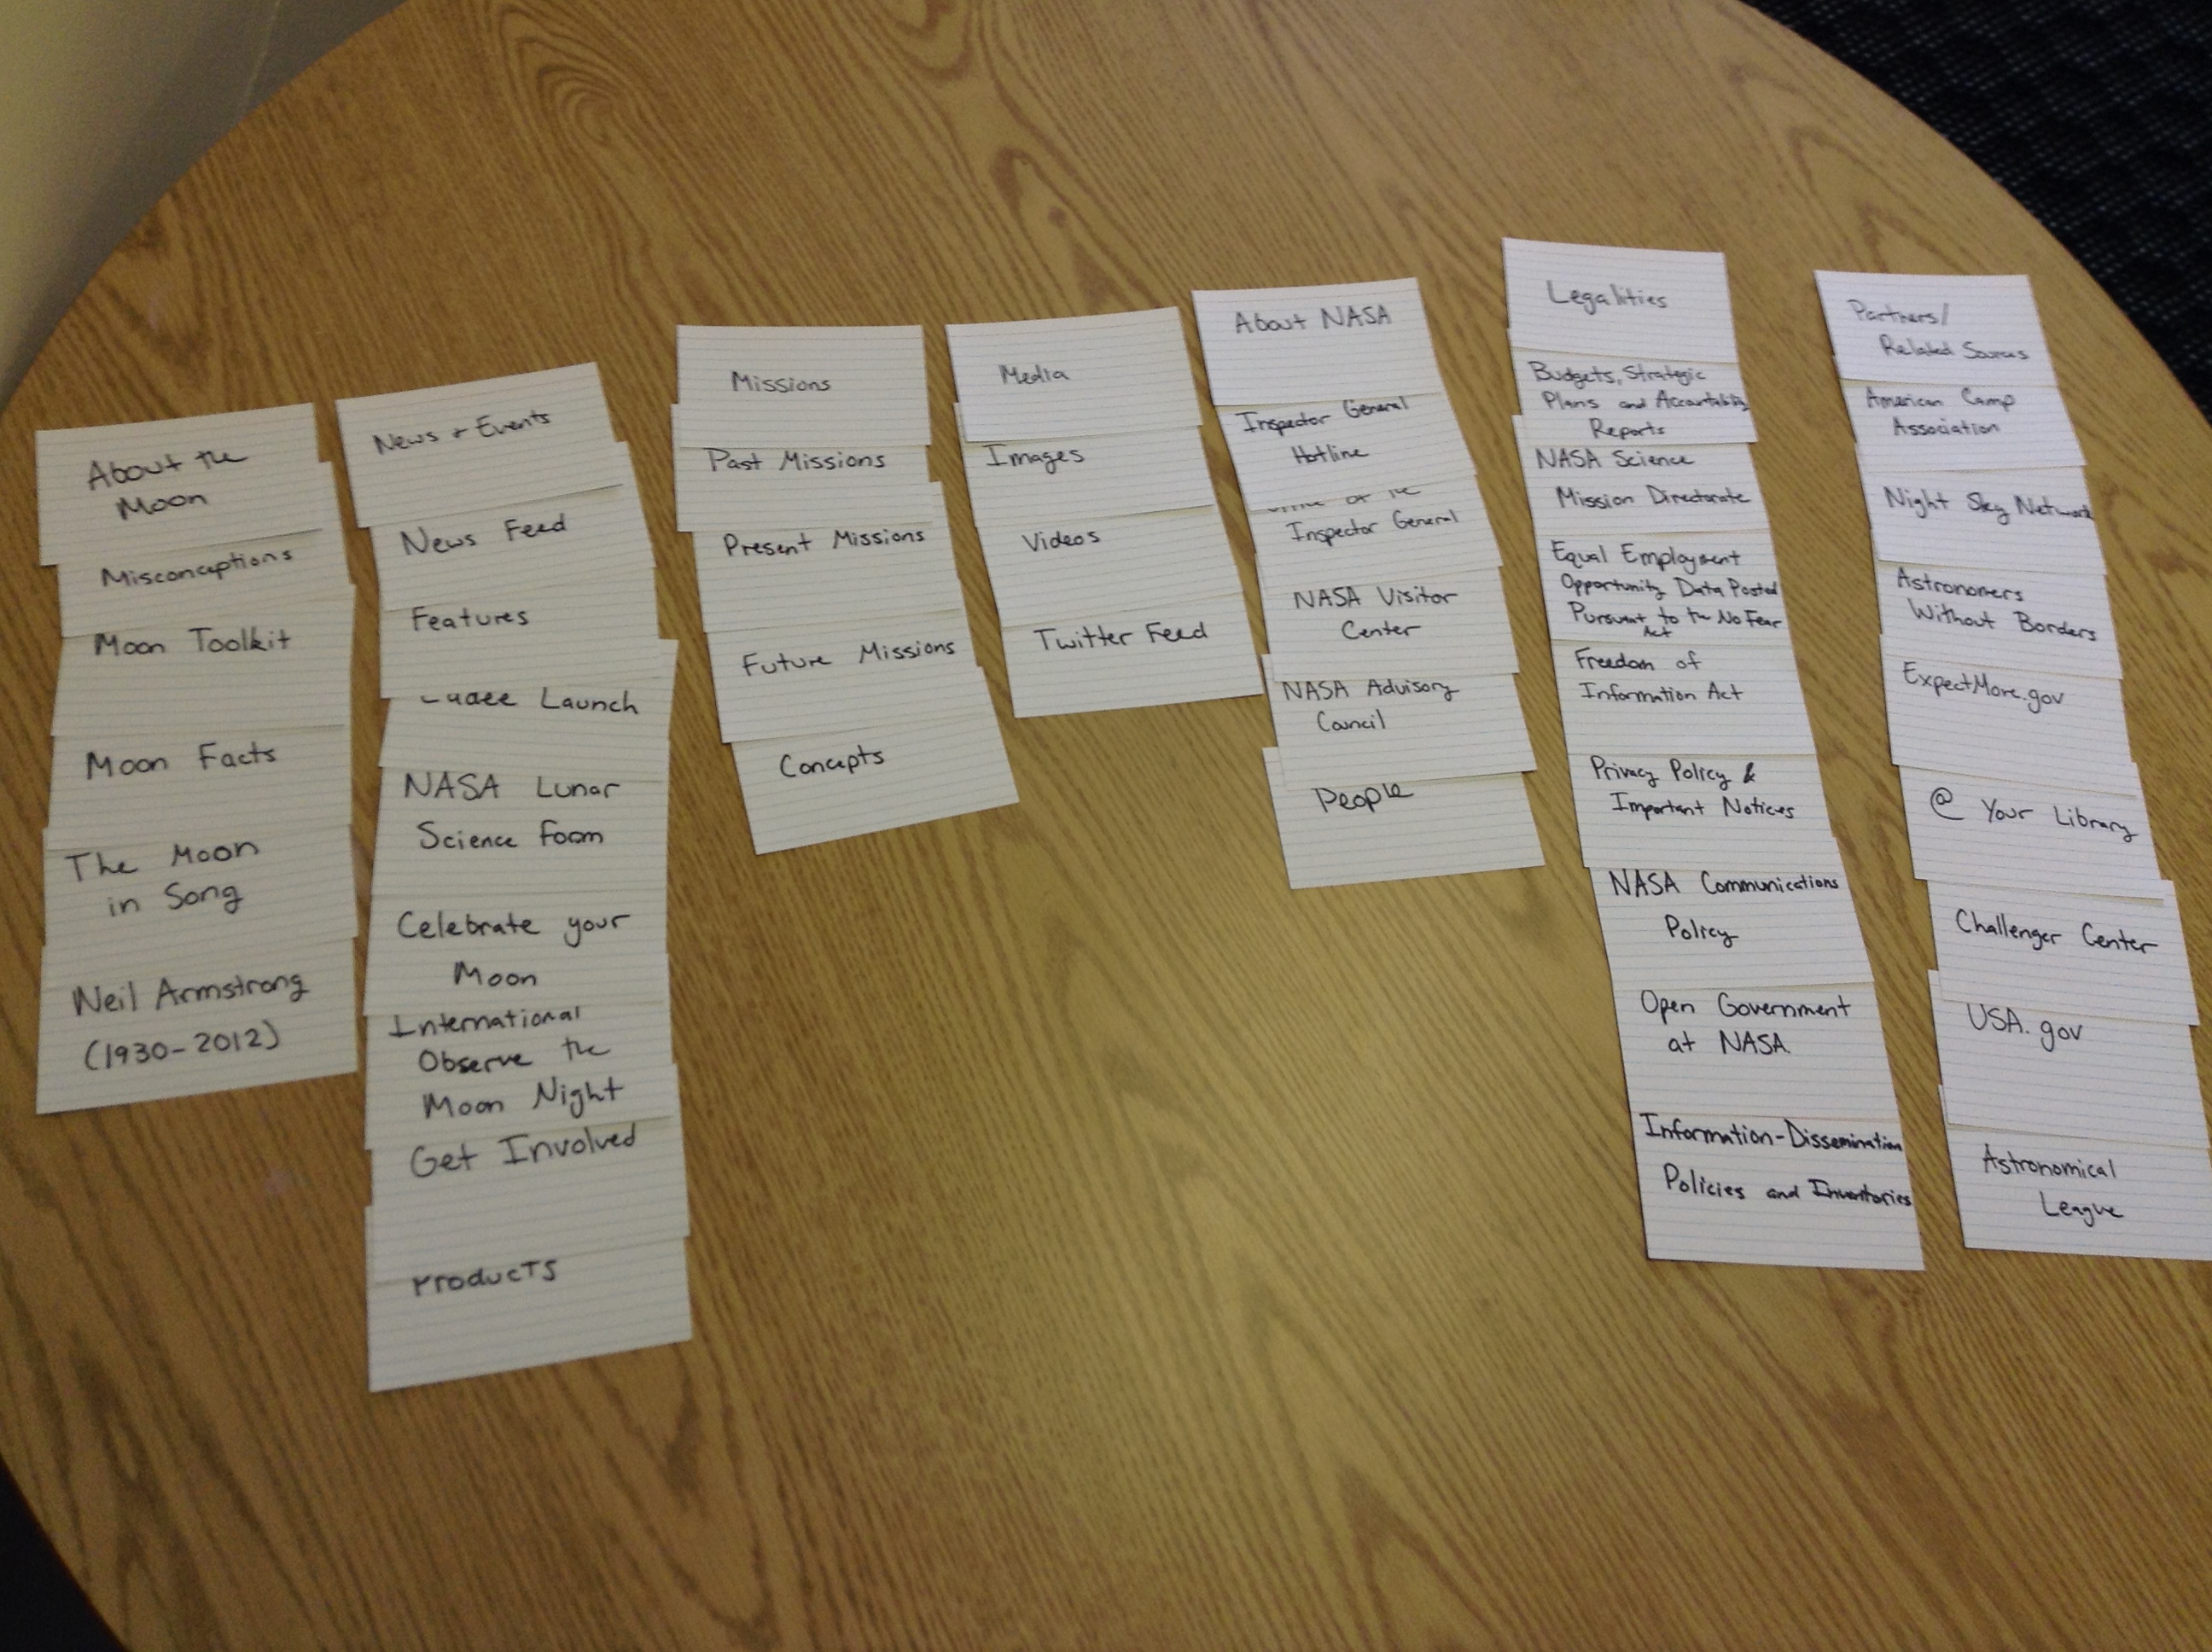 About the
Moon
Misconceptions
Moon Toolkit
Moon Facts
The Moon
in Song
Neil Armstrong
(1930-2012)
News + Events
News Feed
Features
Ladee Launch
NASA Lunar
Science Foom
Celebrate your
Moon
International
Observe the
Moon Night
Get Involved
Products
Missions
Past Missions
Present Missions
Future Missions
Concepts
Media
Images
Videos
Twitter Feed
About NASA
Inspector General
Hotline
Office of the
Inspector General
NASA Visitor
Center
NASA Advisory
Council
People
Legalities
Budgets, Strategic
Plans and Accountability
Reports
NASA Science
Mission Directorate
Equal Employment
Opportunity Data Posted
Pursuant to the No Fear
Act
Freedom of
Information Act
Privacy Policy &
Important Notices
NASA Communications
Policy
Open Government
at NASA
Information-Dissemination
Policies and Inventories
Partners/
Related Sources
American Camp
Association
Night Sky Network
Astronomers
Without Borders
ExpectMore.gov
@ Your Library
Challenger Center
USA.gov
Astronomical
League